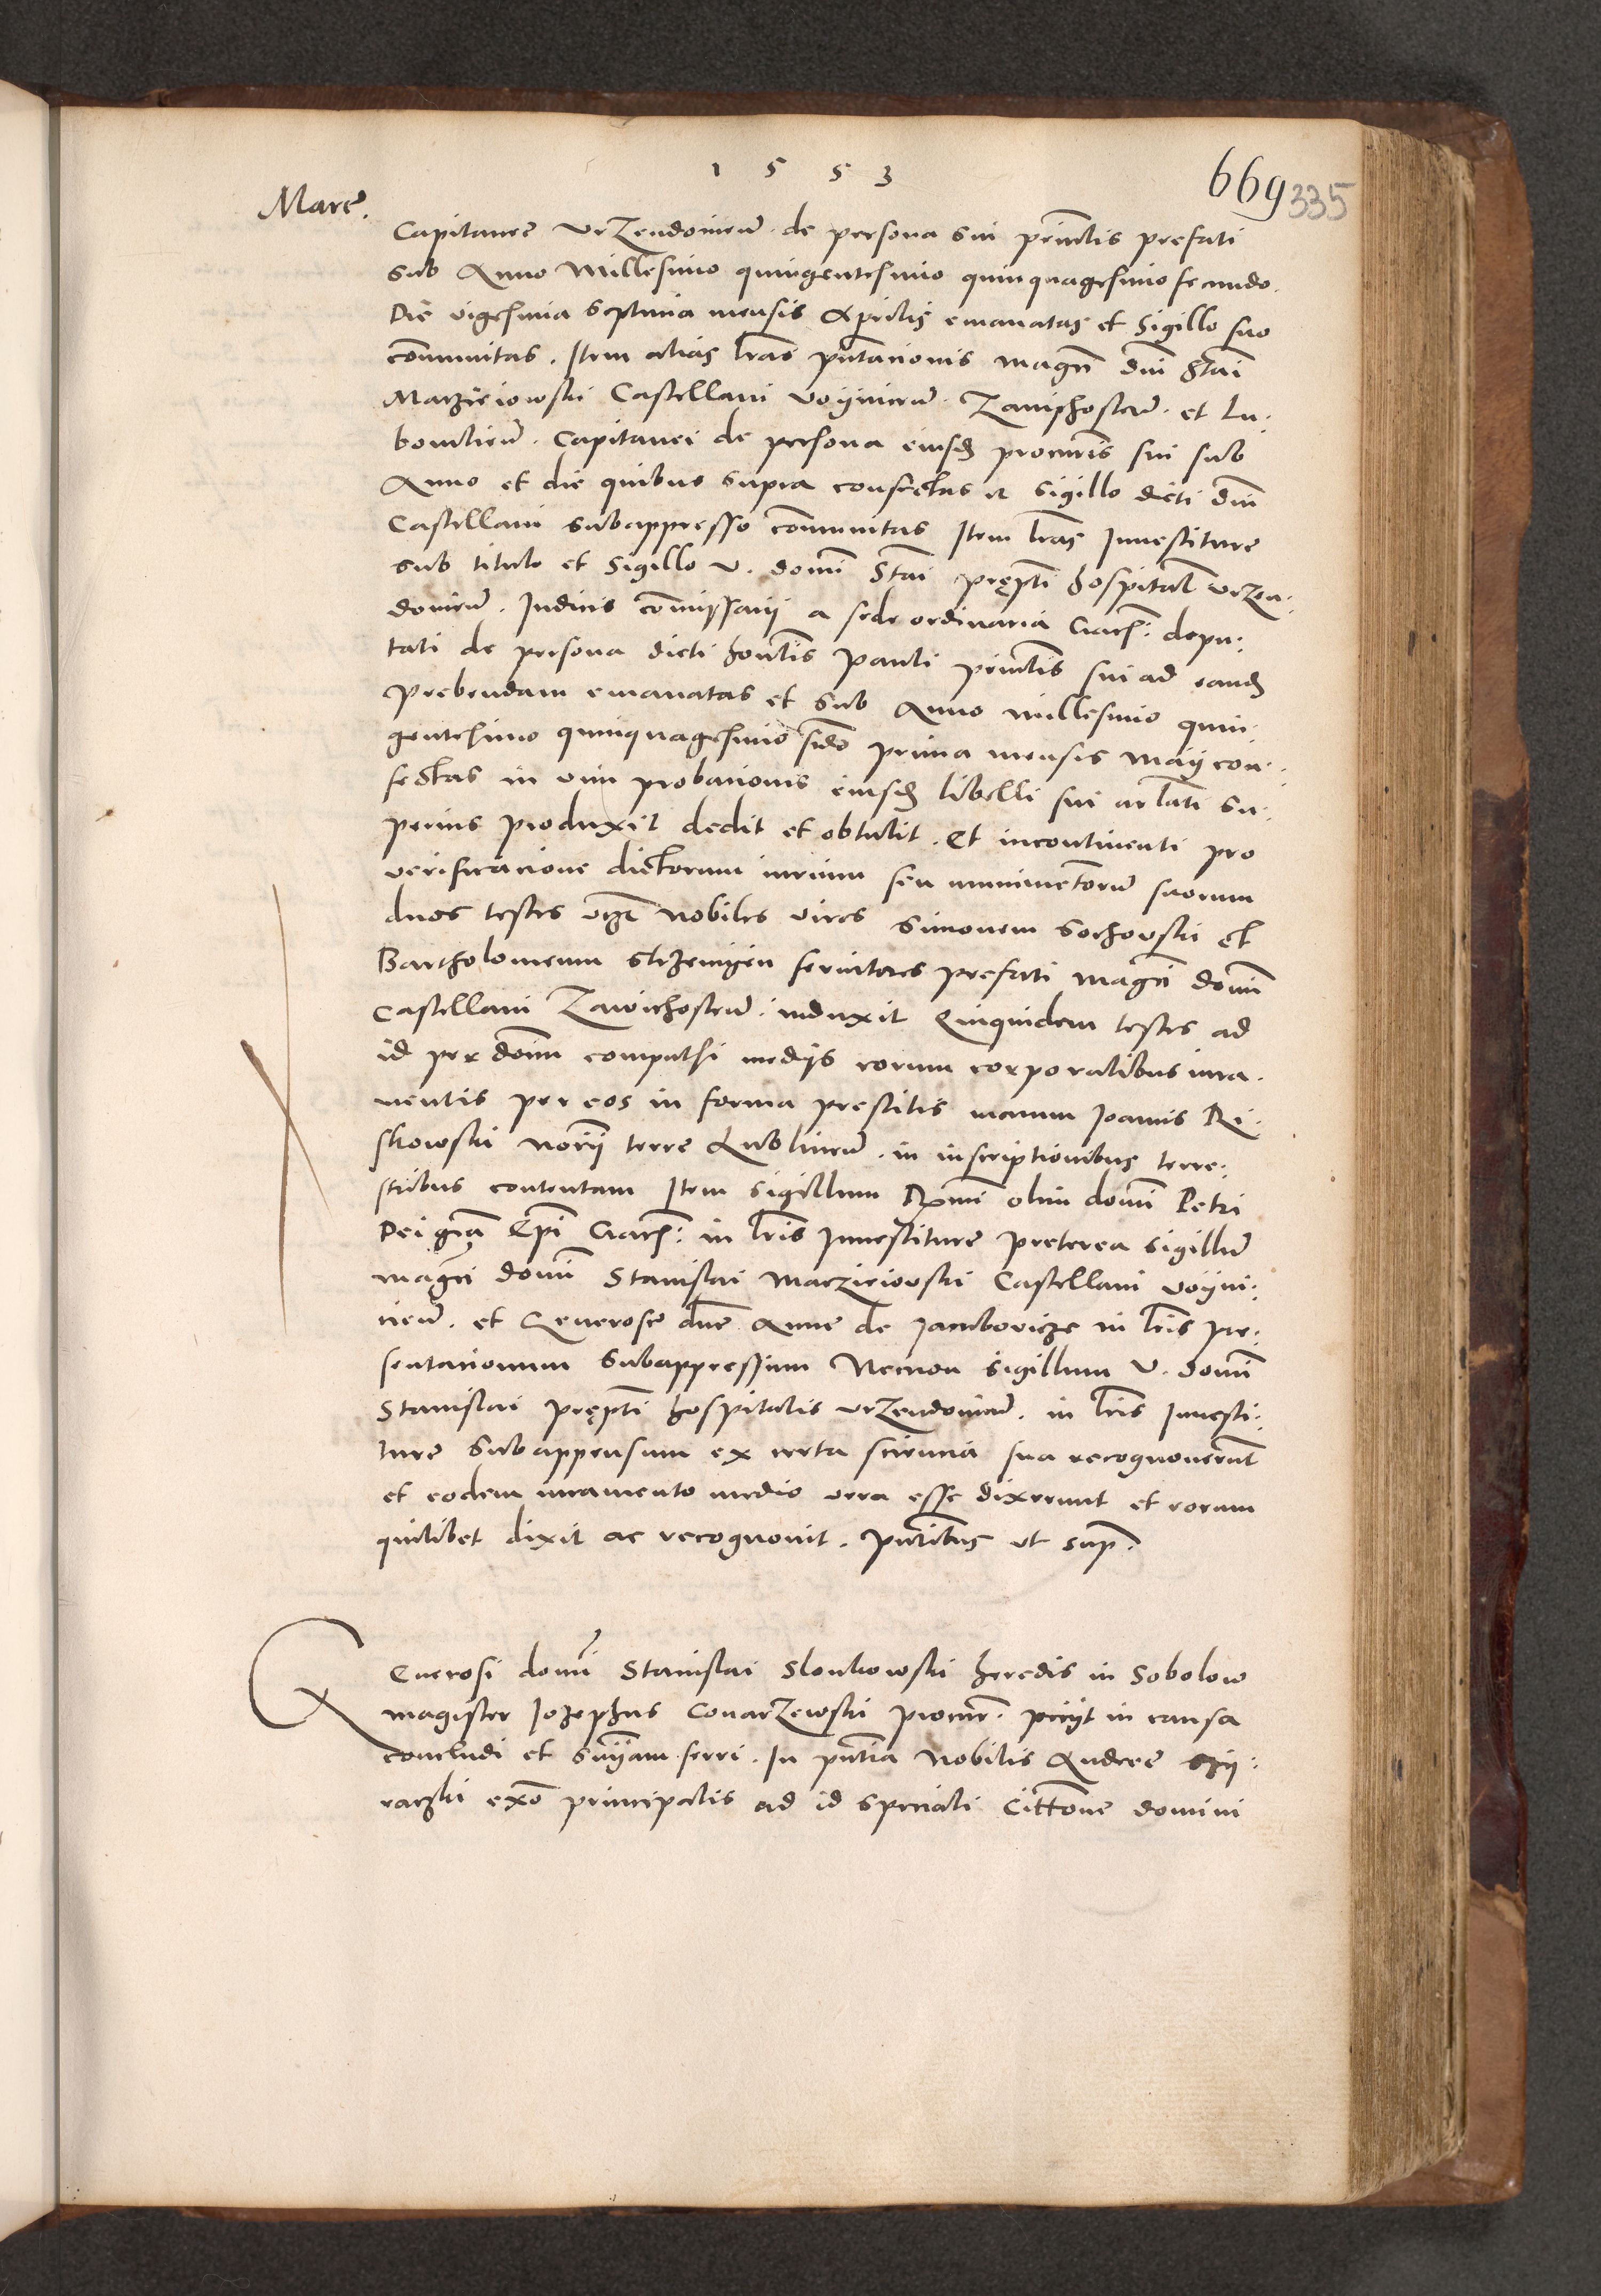 1 5 5 3
669 335
Marc̃.
Capitanee Vrzendovieñ. de persona sui prin̄cl̄is prefati
sub Anno Millesimo quingentesimo quinquagesimo secundo.
Die vigesima septima mensis Aprilis emanatas et Sigillo suo
com̄unitas. Item alias l̄ras pn̄tacionis magn̄ dn̄i Stai
Marzieiowski Castellani Voyniceñ. Zawichosteñ. et Lu:
bomlieñ. Capitanei de persona eiusd̄ procur̄is sui sub
Anno et die quibus supra confectas et sigillo dicti dn̄i
Castellani subappresso com̄unitas Item l̄ras Inuestiture
sub titulo et Sigillo V. domī Stai prep̄ti hospital̄ Vrzen:
dovieñ. Iudicis com̄issarii a sede ordinaria Crac̄: depu:
tati de persona dicti hon̄lis Pauli prin̄cl̄is sui ad eand̄
prebendam emanatas et sub Anno millesimo quin:
gentesimo quinquagesimo s̄cdo prima mensis Maij con:
fectas in vim probacionis eiusd̄ libelli sui ar̄lati su:
perius produxit dedit et obtulit. Et incontinenti pro
verificacione dictorum iurium seu munimentorũ suorum
duos testes vz̄ nobiles viros Simonem Sochowski et
Bartholomeum Strzemijen seruitores prefati magn̄ci domī
Castellani Zawichosteñ. induxit Quiquidem testes ad
id per dom̄ compulsi medijs eorum corporalibus iura.
mentis per eos in forma prestitis manum Joannis Ri:
skowski nōrii terre Lublineñ. in inscriptionibus terre:
stribus contentam Item sigillum Rm̄i olim domī Petri
Dei gr̄a Ep̄i Crac̄: in l̄ris Inuestiture preterea sigillũ
magn̄ci domī Stanislai Marzieiovski Castellani Voyni:
cieñ. et Generose dn̄e Anne de Jacubovicze in l̄ris pre:
sentacionum subappressum Necnon sigillum V. domī
Stanislai prep̄ti hospitalis Vrzendovieñ. in l̄ris Inuesti:
ture subappensum ex certa sciencia sua recognouerũt
et eodem iuramento medio vera esse dixerunt et eorum
quilibet dixit ac recognouit. pn̄tibus vt sup̄.
Generosi domī Stanislai Slonkowski heredis in Sobolow
magister Jozephus Conarzewski procur̄. petijt in causa
concludi et sn̄iam ferri. In pn̄tia Nobilis Andree
raczki ex̄o principalis ad id speciali Citt̄one domini